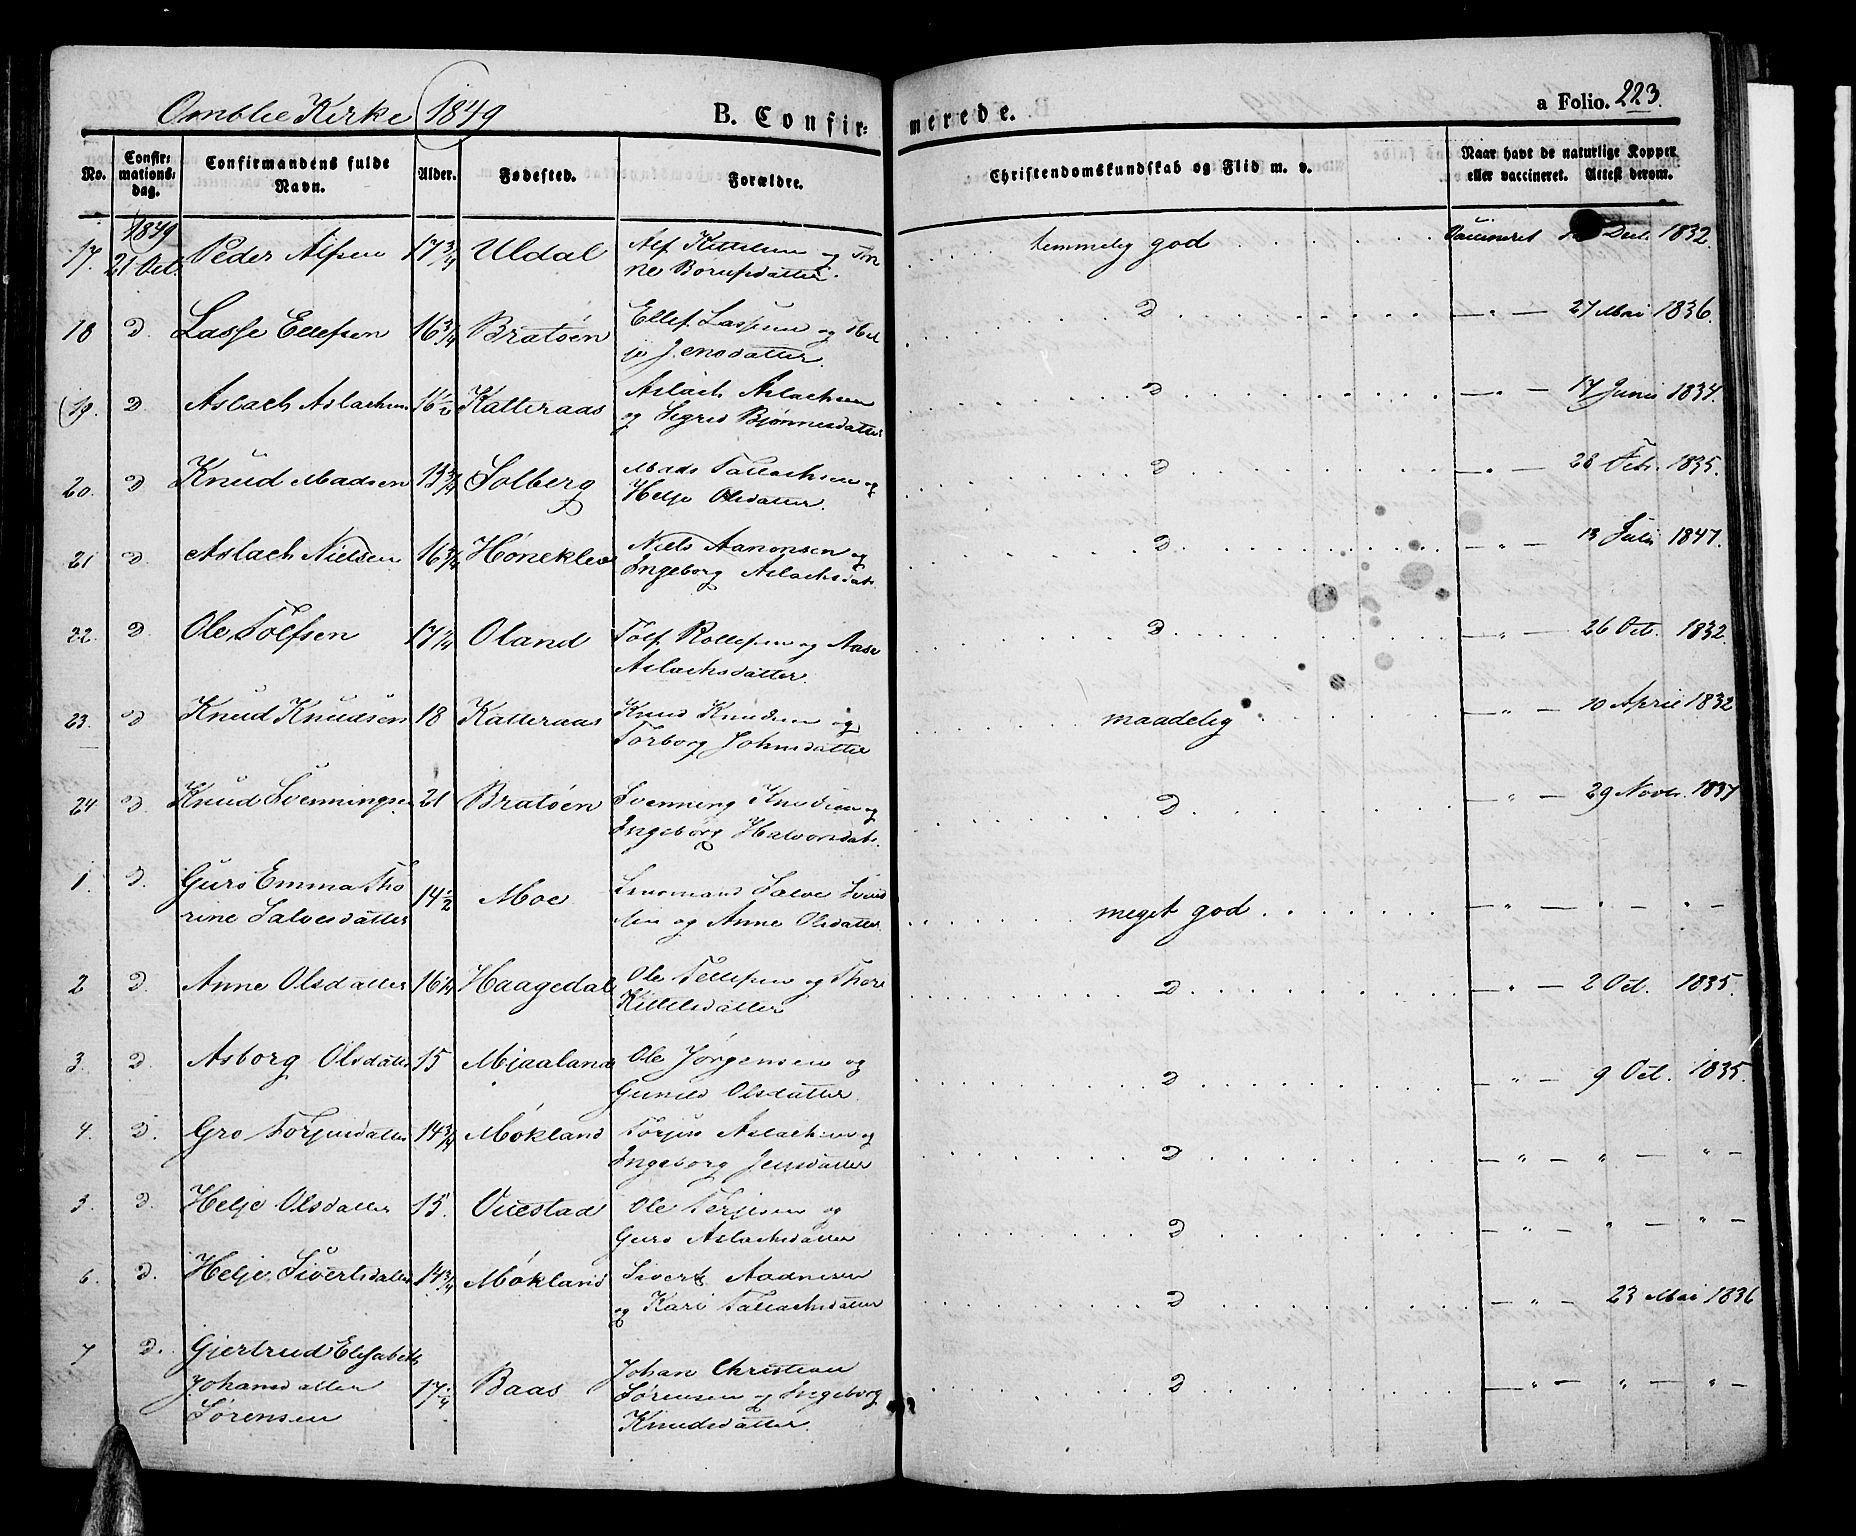 Omblie Kirke 1849 B. Confir= merede. a Folio. 223.
No. Confir= mations= dag. Confirmandens fulde Navn. Alder. Fødested. Forældre. Christendomskundskab og Flid m. v. Naar havt de naturlige Kopper eller vaccineret. Attest derom.
1849
17. 21 Oct. Peder Alfsen 17 3/4 Uldal Alf Kittelsen og temmelig god Vaccineret Dec. 1832.
18 D. Lasse Ellefsen 16 3/4 Bratøen Ellef Lassesen og Hel D — " — 27 Mai 1836.
je Jensdatter.
19. D Aslach Aslachsen 16 1/2 Katteraas Aslach Aslachsen D — " — 17 Juni 1834.
og Sigrid Bjønnesdatter
20. D Knud Madsen Solberg Mads Tallachsen og D — " — 28 1835.
Helje Olsdatter.
21 D Aslach Nielsen 16 3/4 Høneklev Niels Aanonsen og D — " — 13 Juli 1847.
Ingeborg Aslachsdat.
22. D Ole Tolfsen Oland Tolf Rollefsen og Aase D — " — 26 Oct. 1832.
Aslachsdatter.
23. D Knud Knudsen 18 Katteraas Knud Knudsen og maadelig — " — 10 April 1832
Torborg Johnsdatter
24. D Knud Svenningsen 21 Bratøen Svenning Knudsen og D — " — 29 Novbr. 1837
Ingeborg Halvorsdatr.
1. D. Guro Emma Tho 14 1/2 Moe Salve meget god — " — " — " —
rine Salvesdatter og Anne Olsdatter
2 D. Anne Olsdatter 16 1/4 Haagedal Ole Tellefsen og Thore D — " — 2 Oct. 1835.
Kittelsdatter
3. D. Asborg Olsdatter 15 Mjaaland Ole Jørgensen og D — " — 9 Oct. 1835.
Gunild Olsdatter.
4. D. Gro Torjusdatter 14 3/4 Møkland Torjus Aslachsen og D — " — " — " —
Ingeborg Jensdatter
5. D. Helje Olsdatter 15. Ouestad Ole Terjesen og D — " — " — " —
Guro Aslachsdatter
6. D. Helje Sivertsdatter 14 3/4 Møkland Sivert Aadnesen D — " — 23 Mai 1836
og Kari Tallachsdatter
7 D. Gjertrud Elisabeth 17 1/4 Baas Johan Christian D — " — " — " —
Johansdatter Sørensen og Ingeborg
Sørensen Knudsdatter.